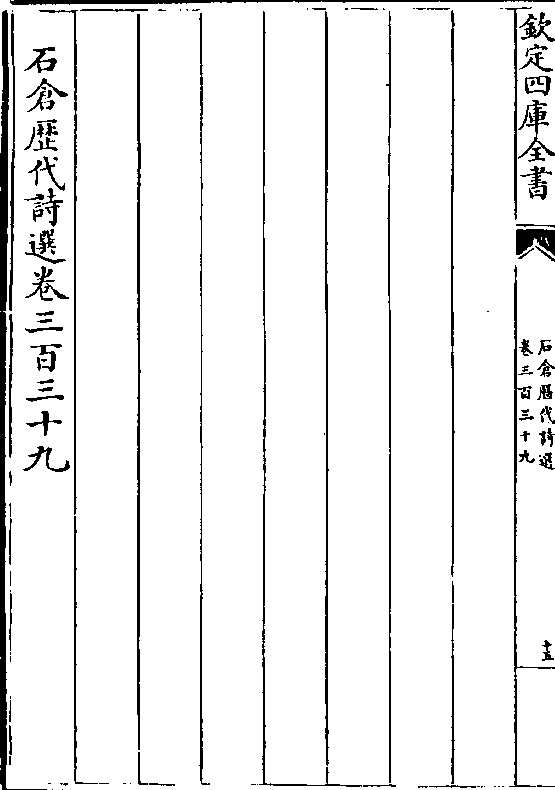 欽定四庫全書
石倉歴代詩選
卷三百三十九
十五
石倉歴代詩選卷三百三十九